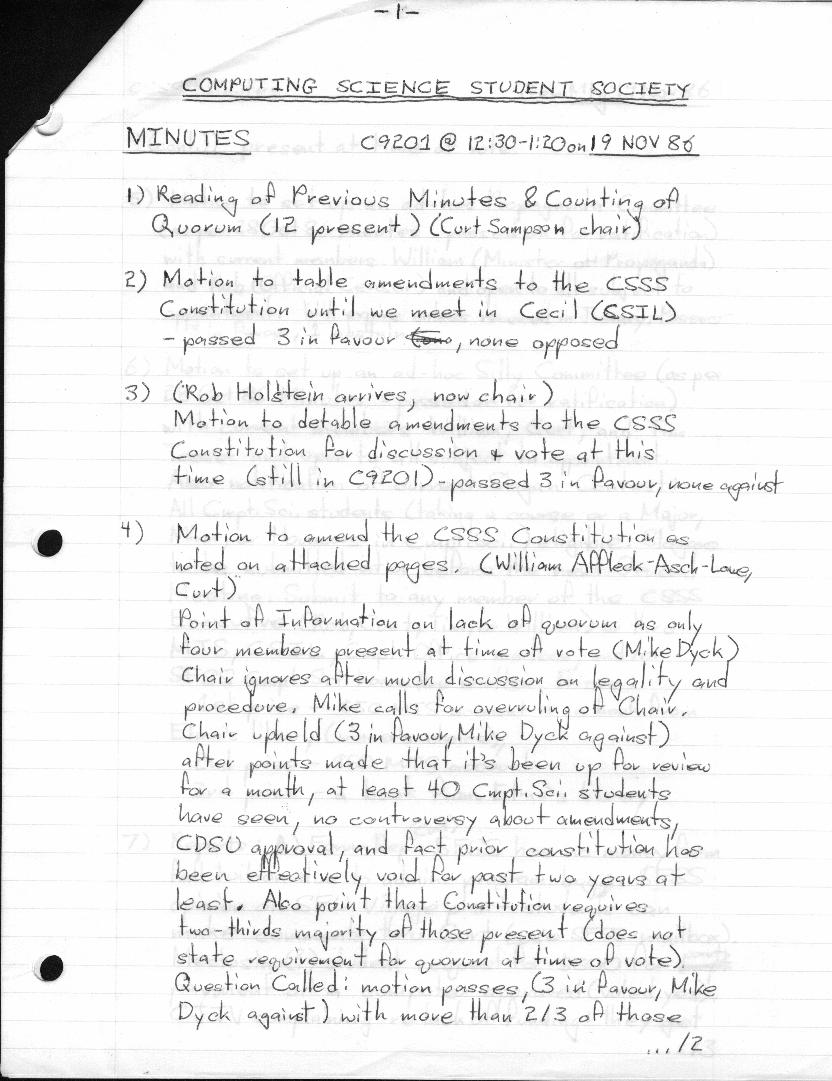 -1-
COMPUTING SCIENCE STUDENT SOCIETY
MINUTES C9201 @ 12:30-1:20 on 19 NOV 86
1) Reading of Previous Minutes & Counting of
Quorum (12 present) (Curt Sampson chair)
2) Motion to table amendments to the CSSS
Constitution until we meet in Cecil (CSIL)
- passed 3 in favour , none opposed
3) (Rob Holstein arrives, now chair)
Motion to detable amendments to the CSSS
Constitution for discussion & vote at this
time (still in C9201) - passed 3 in favour, none against
4) Motion to amend the CSSS Constitution as
noted on attached pages. (William Affleck-Asch-Lowe,
Curt)
Point of Information on lack of quorum as only
four members present at time of vote (Mike Dyck)
Chair ignores after much discussion on legality and
procedure. Mike calls for overruling of Chair.
Chair upheld (3 in favour, Mike Dyck against)
after points made that it's been up for review
for a month, at least 40 Cmpt. Sci. students
have seen, no controversy about amendments,
CDSU approval, and fact prior constitution has
been effectively void for past two years at
least. Also point that Constitution requires
two-thirds majority of those present (does not
state requirement for quorum at time of vote).
Question Called: motion passes, (3 in favour, Mike
Dyck against) with more than 2/3 of those
.../2